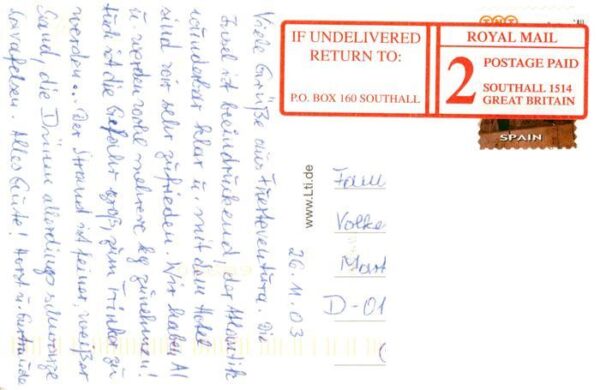 Viele Grüße aus Fuerteventura. Die
Insel ist beeindruckend, der Atlantik
wunderbar klar u. mit dem Hotel
sind wir sehr zufrieden. Wir haben AI
u. werden wohl mehrere kg zunehmen!
Auch ist die Gefahr groß, zum Trinker zu
werden... Der Strand ist feiner, weißer
Sand, die Dünen allerdings schwarze
Lavafelsen. Alles Gute! Horst u. Gertraude
26.11.03
www.Lti.de
IF UNDELIVERED
RETURN TO:
P.O. BOX 160 SOUTHALL
ROYAL MAIL
2
POSTAGE PAID
SOUTHALL 1514
GREAT BRITAIN
SPAIN
Frau
Volke
Mart
D-01